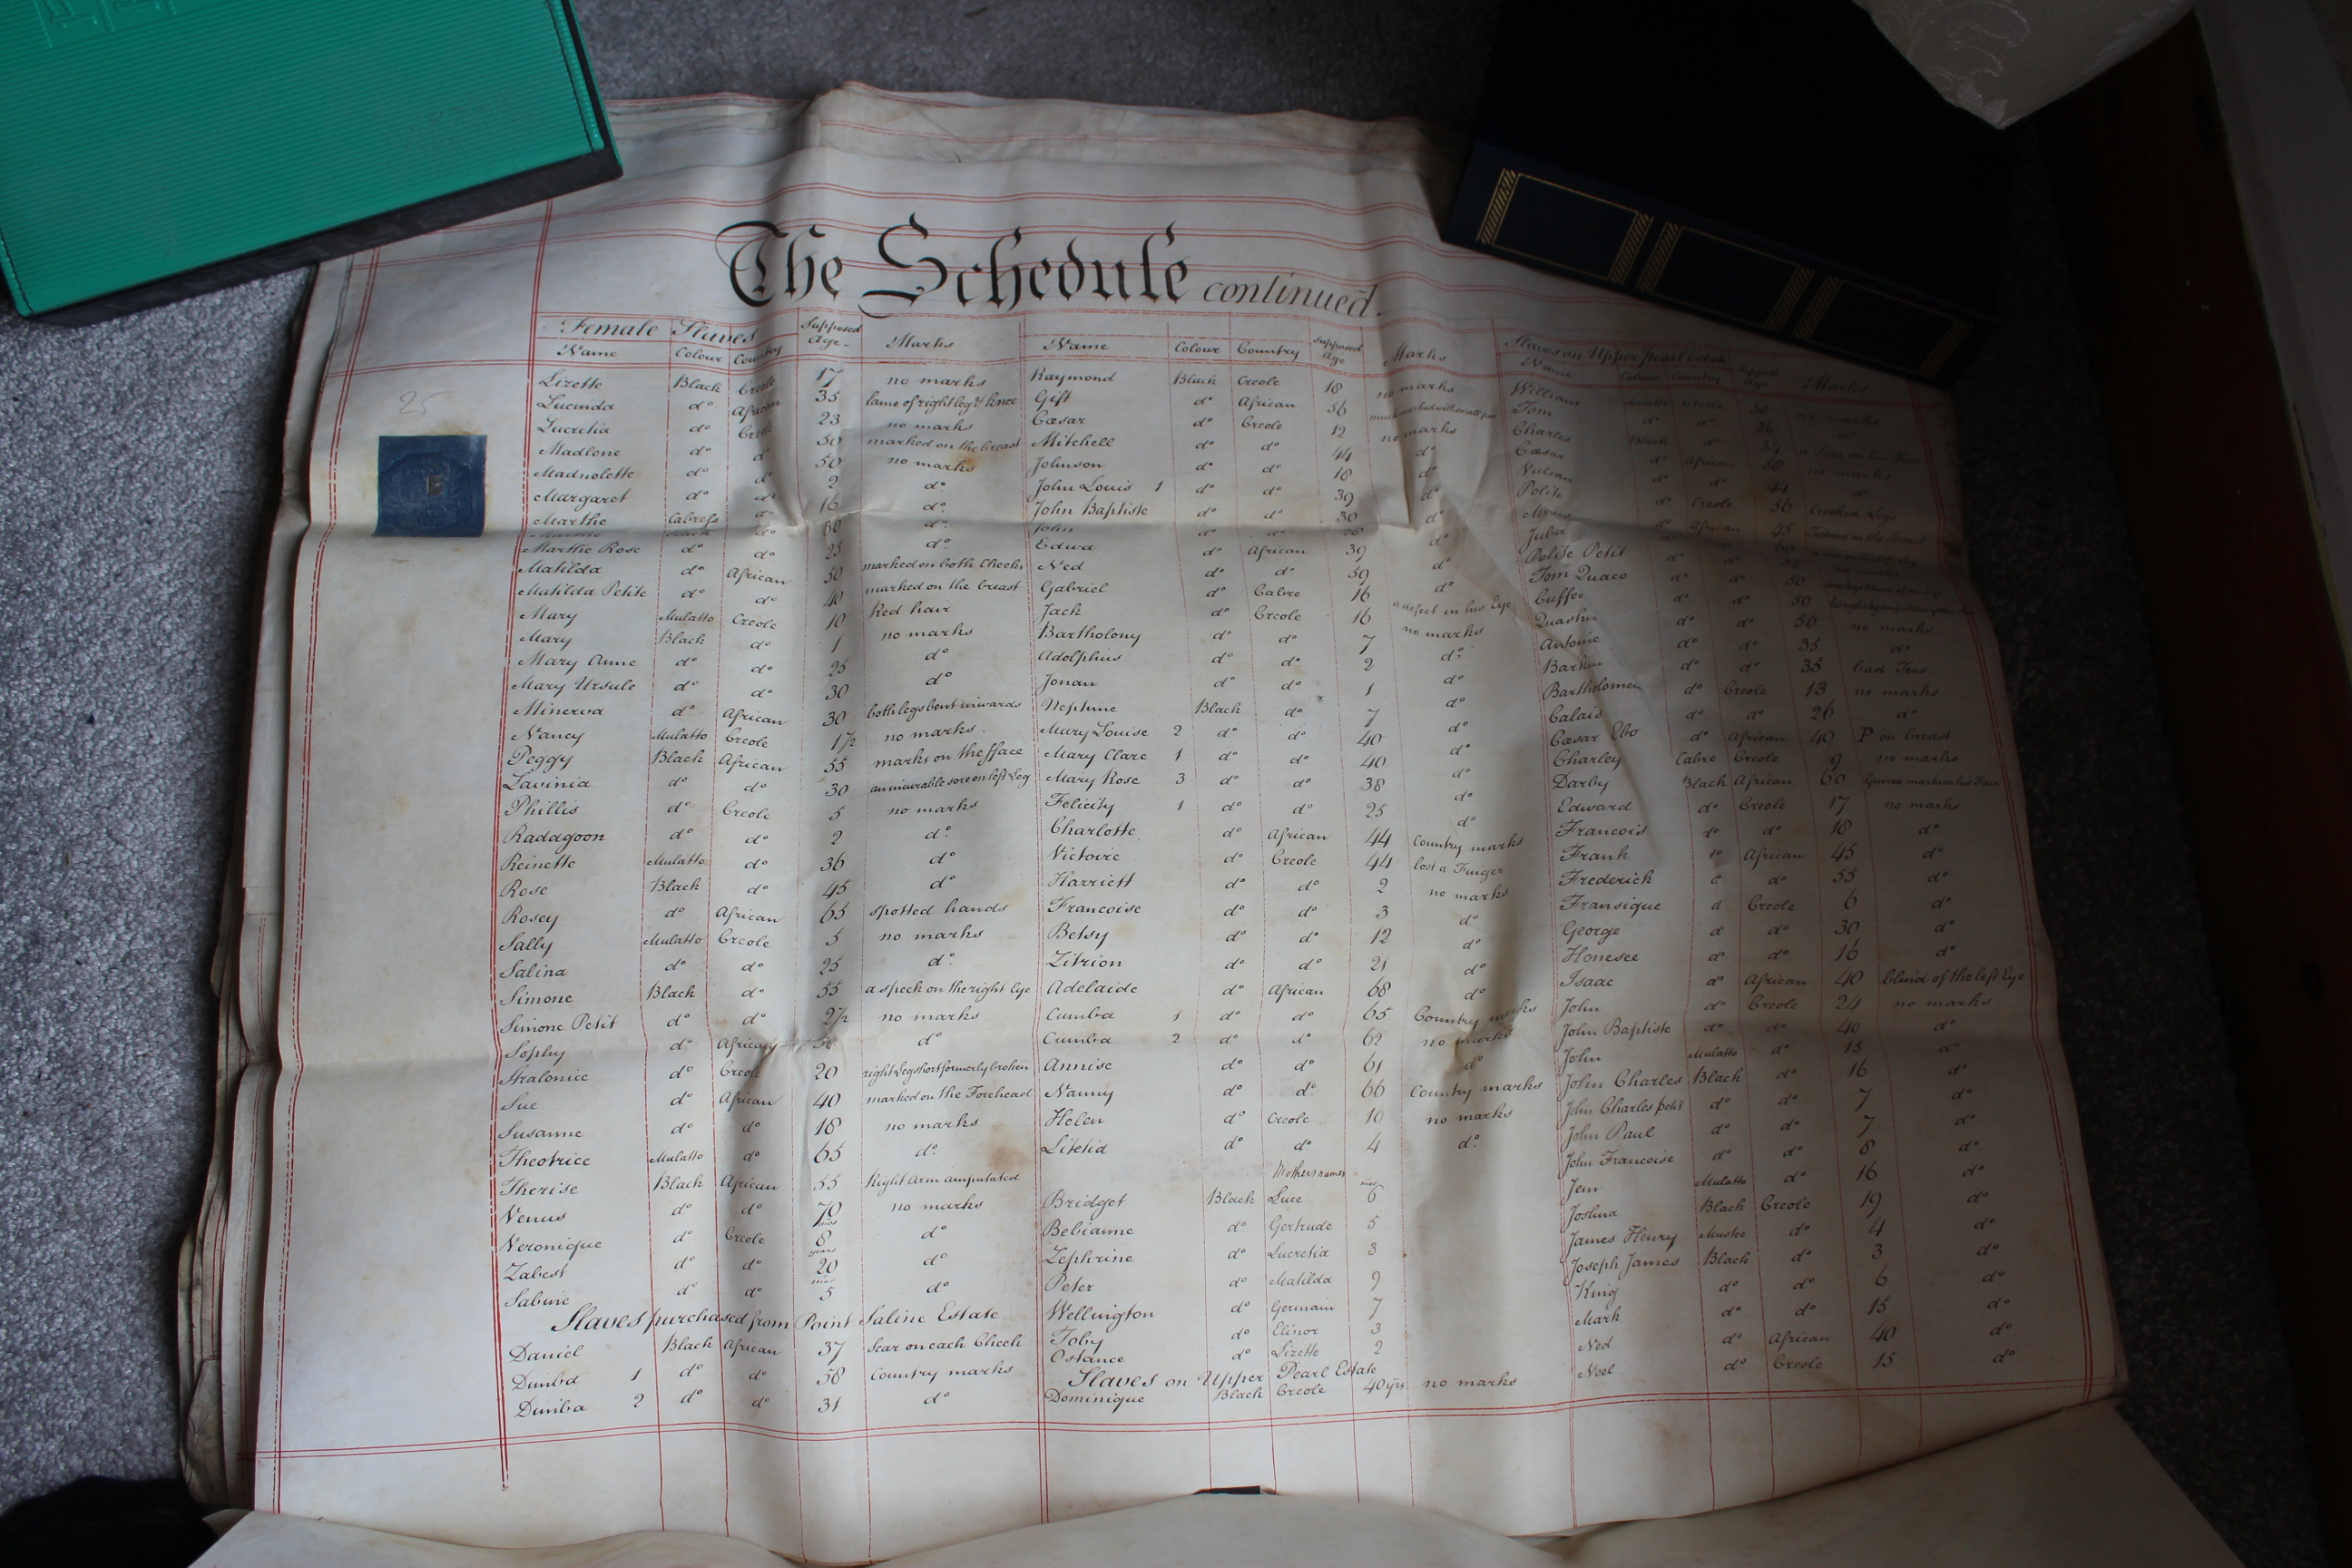 The Schedule continued.
25
Female Slaves
Name Colour Country Supposed Age Marks
Lizette Black Creole 17 no marks
Lucinda do African 35 lame of right leg & knee
Lucretia do Creole 23 no marks
Madlone do do 50 marked on the breast
Madnolette do do 50 no marks
Margaret do do 2 do
Marthe Cabress do 16 do
Black do 60 do
Marthe Rose do do 25 do
Matilda do African 50 marked on both Cheeks
Matilda Petite do do 40 marked on the breast
Mary Mulatto Creole 10 Red hair
Mary Black do 1 no marks
Mary Anne do do 25 do
Mary Ursule do do 30 do
Minerva do African 30 both legs bent inwards
Nancy Mulatto Creole 1½ no marks
Peggy Black African 55 marks on the fface
Lavinia do do 30 an incurable sore on left Leg
Phillis do Creole 5 no marks
Radagoon do do 2 do
Reinette Mulatto do 36 do
Rose Black do 45 do
Rosey do African 65 spotted hands
Sally Mulatto Creole 5 no marks
Salina do do 25 do
Simone Black do 55 a speck on the right Eye
Simone Petit do do 2½ no marks
Sophy do African do
Stralonice do Creole 20 right Leg short formerly broken
Sue do African 40 marked on the Forehead
Susanne do do 18 no marks
Theotrice Mulatto do 65 do
Therise Black African 55 Right arm amputated
Venus do do 70 no marks
Veronique do Creole 8 mos do
Zabest do do 20 years do
Sabine do do 5 mos do
Slaves purchased from Point Saline Estate
Daniel Black African 37 Scar on each Cheek
Dimba 1 do do 58 Country marks
Dimba 2 do do 31 do
Name Colour Country Supposed Age Marks
Raymond Black Creole 18 no marks
Gift do African 56 much marked with small pox
Cæsar do Creole 12 no marks
Mitchell do do 44 do
Johnson do do 18 do
John Louis 1 do do 39 do
John Baptiste do do 30 do
John do do 28
Edwa do African 39 do
Ned do do 59 do
Gabriel do Cabre 16 do
Jack do Creole 16 a defect in his Eye
Bartholomy do do 7 no marks
Adolphus do do 2 do
Jonan do do 1 do
Neptune Black do 7 do
Mary Louise 2 do do 40 do
Mary Clare 1 do do 40 do
Mary Rose 3 do do 38 do
Felicity 1 do do 25 do
Charlotte do African 44 Country marks
Victoire do Creole 44 lost a Finger
Harriett do do 2 no marks
Francoise do do 3 do
Betsy do do 12 do
Zitrion do do 21 do
Adelaide do African 68 do
Cumba 1 do do 65 Country marks
Cumba 2 do do 62 no marks
Annise do do 61 do
Nanny do do 66 Country marks
Helen do Creole 10 no marks
Litetia do do 4 do
Mothers names
Bridget Black Luce 6 mos
Bebianne do Gertrude 5
Zephrine do Lucretia 3
Peter do Matilda 9
Wellington do Germain 7
Toby do Elinor 3
Ostance do Lizette 2
Slaves on Upper Pearl Estate
Dominique Black Creole 40 yrs no marks
Slaves on Upper pearl Estate
Name Colour Country Supposed Age Marks
William Mulatto Creole 38 no marks
Tom do do 36 do
Charles Black do 34 a Scar on his Face
Cæsar do African 58 no marks
Vulcan do do 44 do
Polite do Creole 56 Crooked Legs
Moses do African 45
Juba
Polite Petit do do
Tom Quaco do do 50
Cuffee do do 50
Quashie do do 50 no marks
Antoine do do 35 do
Barkin do do 35 bad Toes
Bartholomew do Creole 13 no marks
Calais do do 26 do
Cæsar Ebo do African 40 P on breast
Charley Cabre Creole 9 no marks
Darby Black African 60 Guinea marks on his Face
Edward do Creole 17 no marks
Francois do do 18 do
Frank do African 45 do
Frederick do do 55 do
Fransique do Creole 6 do
George do do 30 do
Honesee do do 16 do
Isaac do African 40 blind of the left Eye
John do Creole 24 no marks
John Baptiste do do 40 do
John Mulatto do 15 do
John Charles Black do 16 do
John Charles petit do do 7 do
John Paul do do 7 do
John Francoise do do 8 do
Jem Mulatto do 16 do
Joshua Black Creole 19 do
James Henry Mustee do 4 do
Joseph James Black do 3 do
King do do 6 do
Mark do do 15 do
Ned do African 40 do
Noel do Creole 15 do